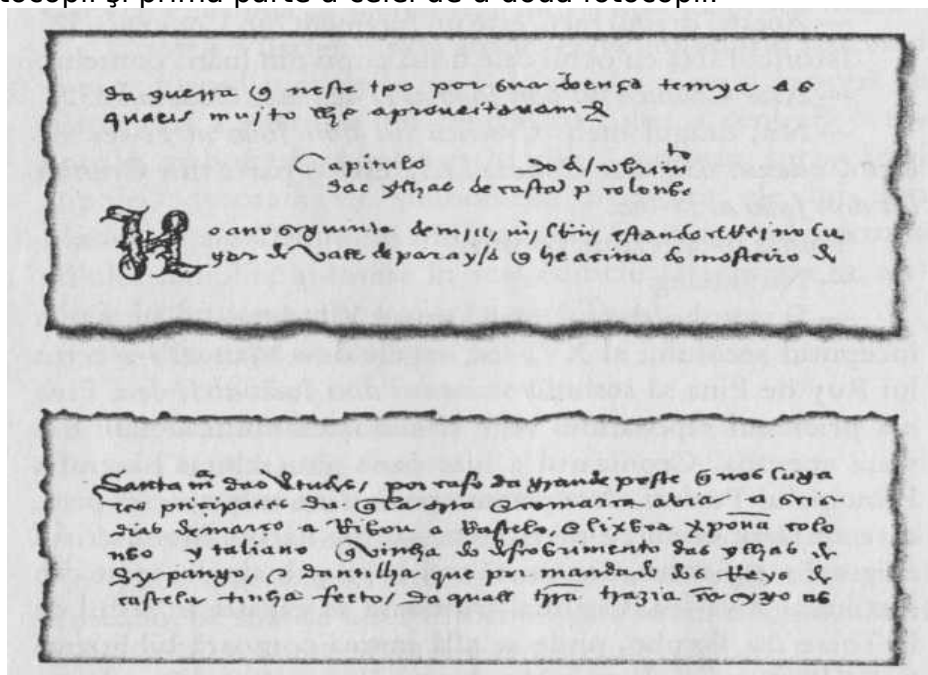 tocopii şi prima parte a celei de-a doua fotocopii:
da guerra e neste tpo por sua doença temya as
quaees mujto lhe aproueitauam
Capitulo descobrim
das ylhas de castela p colonbo
o ano seguinte de mil estando elRei no lu
gar de Vall de parayso que he acima do mosteiro de
Santa das Vtudes, por caso da grande peste que nos luga
res principaes daquella comarca avia, a seis
dias de março a Ribou a Rastelo, e lixboa xpouã colo
nbo ytaliano que vinha do descobrimento das ylhas de
Cypango, e dantilhas que por mandado dos Reys de
castela tinha fecto, da quall trra trazia